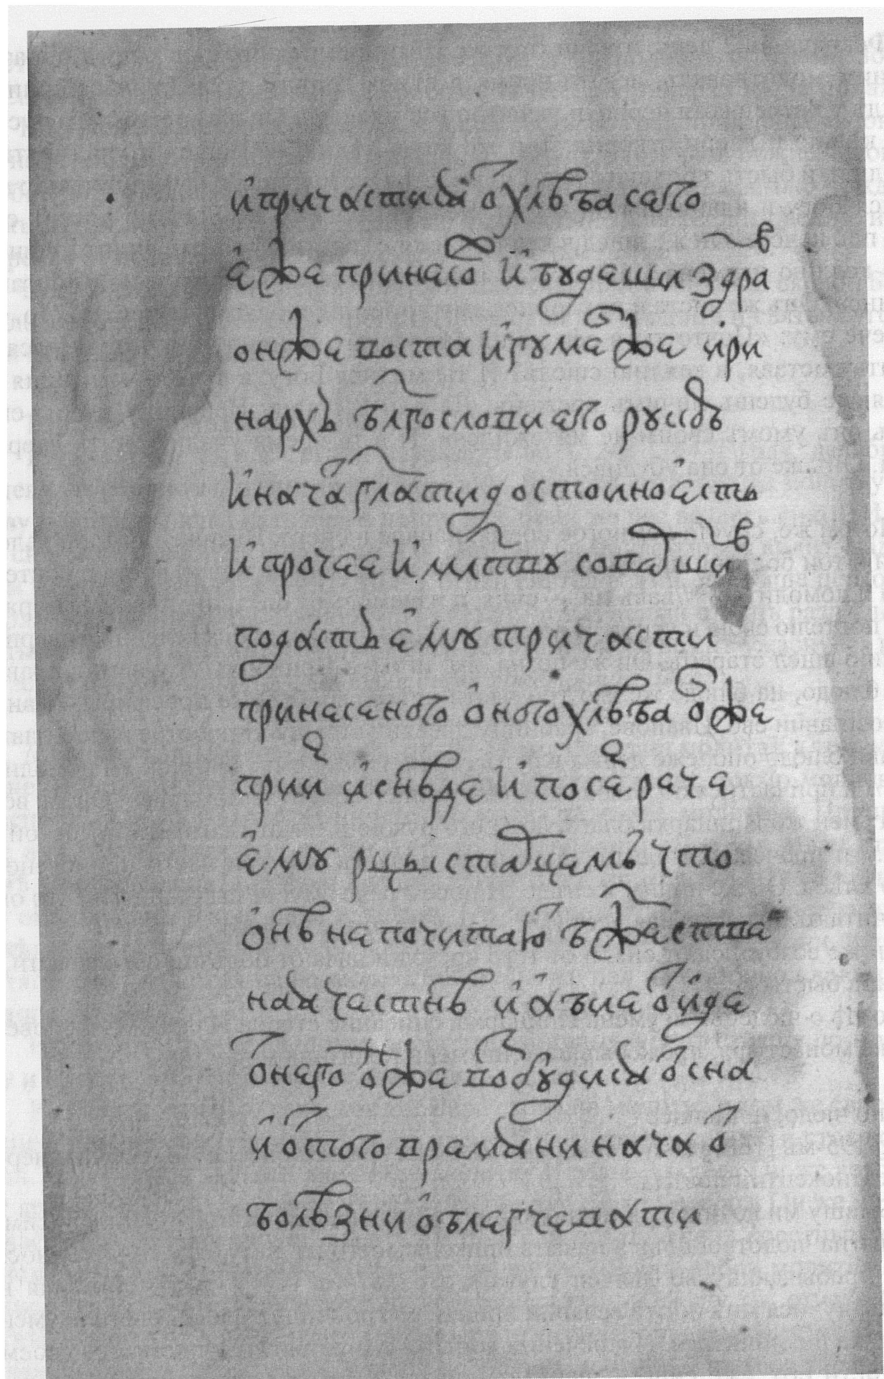 и҆причастисѧ ѿ хлѣба сего
є҆же принесоⷯ и҆ бꙋдеши здраⷡ
онже воста и҆гꙋмеⷩже ири
нархъ бл҃гословиего рꙋкою
и҆нача гл҃ати достоино є҆сть
и҆прочее и҆ мл҃твꙋ соверши
подастъ є҆мꙋ тричасти
принесеного ѻ҆ного хлѣба ѻⷩже
прии и҆ снѣде и҆посеⷨ рече
є҆мꙋ рцы старцемъ что
ѻ҆нѣ непочитаюⷮ бж҃естве
ныя частнѣ и҆ а҆бие ѿиде
ѿнего ѻⷩже возбꙋдисѧ ѿсна
и҆ ѿтого времѧни начаⷮ
болѣзни ѻ҆блегчевати